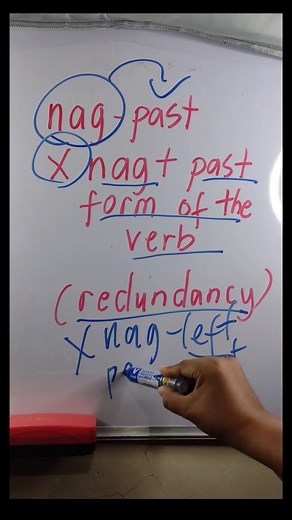 nag-past
X nag + past
form of the
verb
(redundancy)
X nag-left